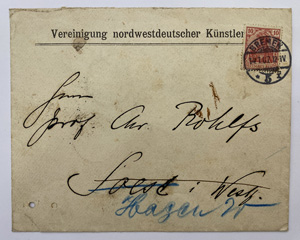 Vereinigung nordwestdeutscher Künstler
10 10
BREMEN
Herrn
Prof. Chr. Rohlfs
Soest i. Westf.
Hagen W